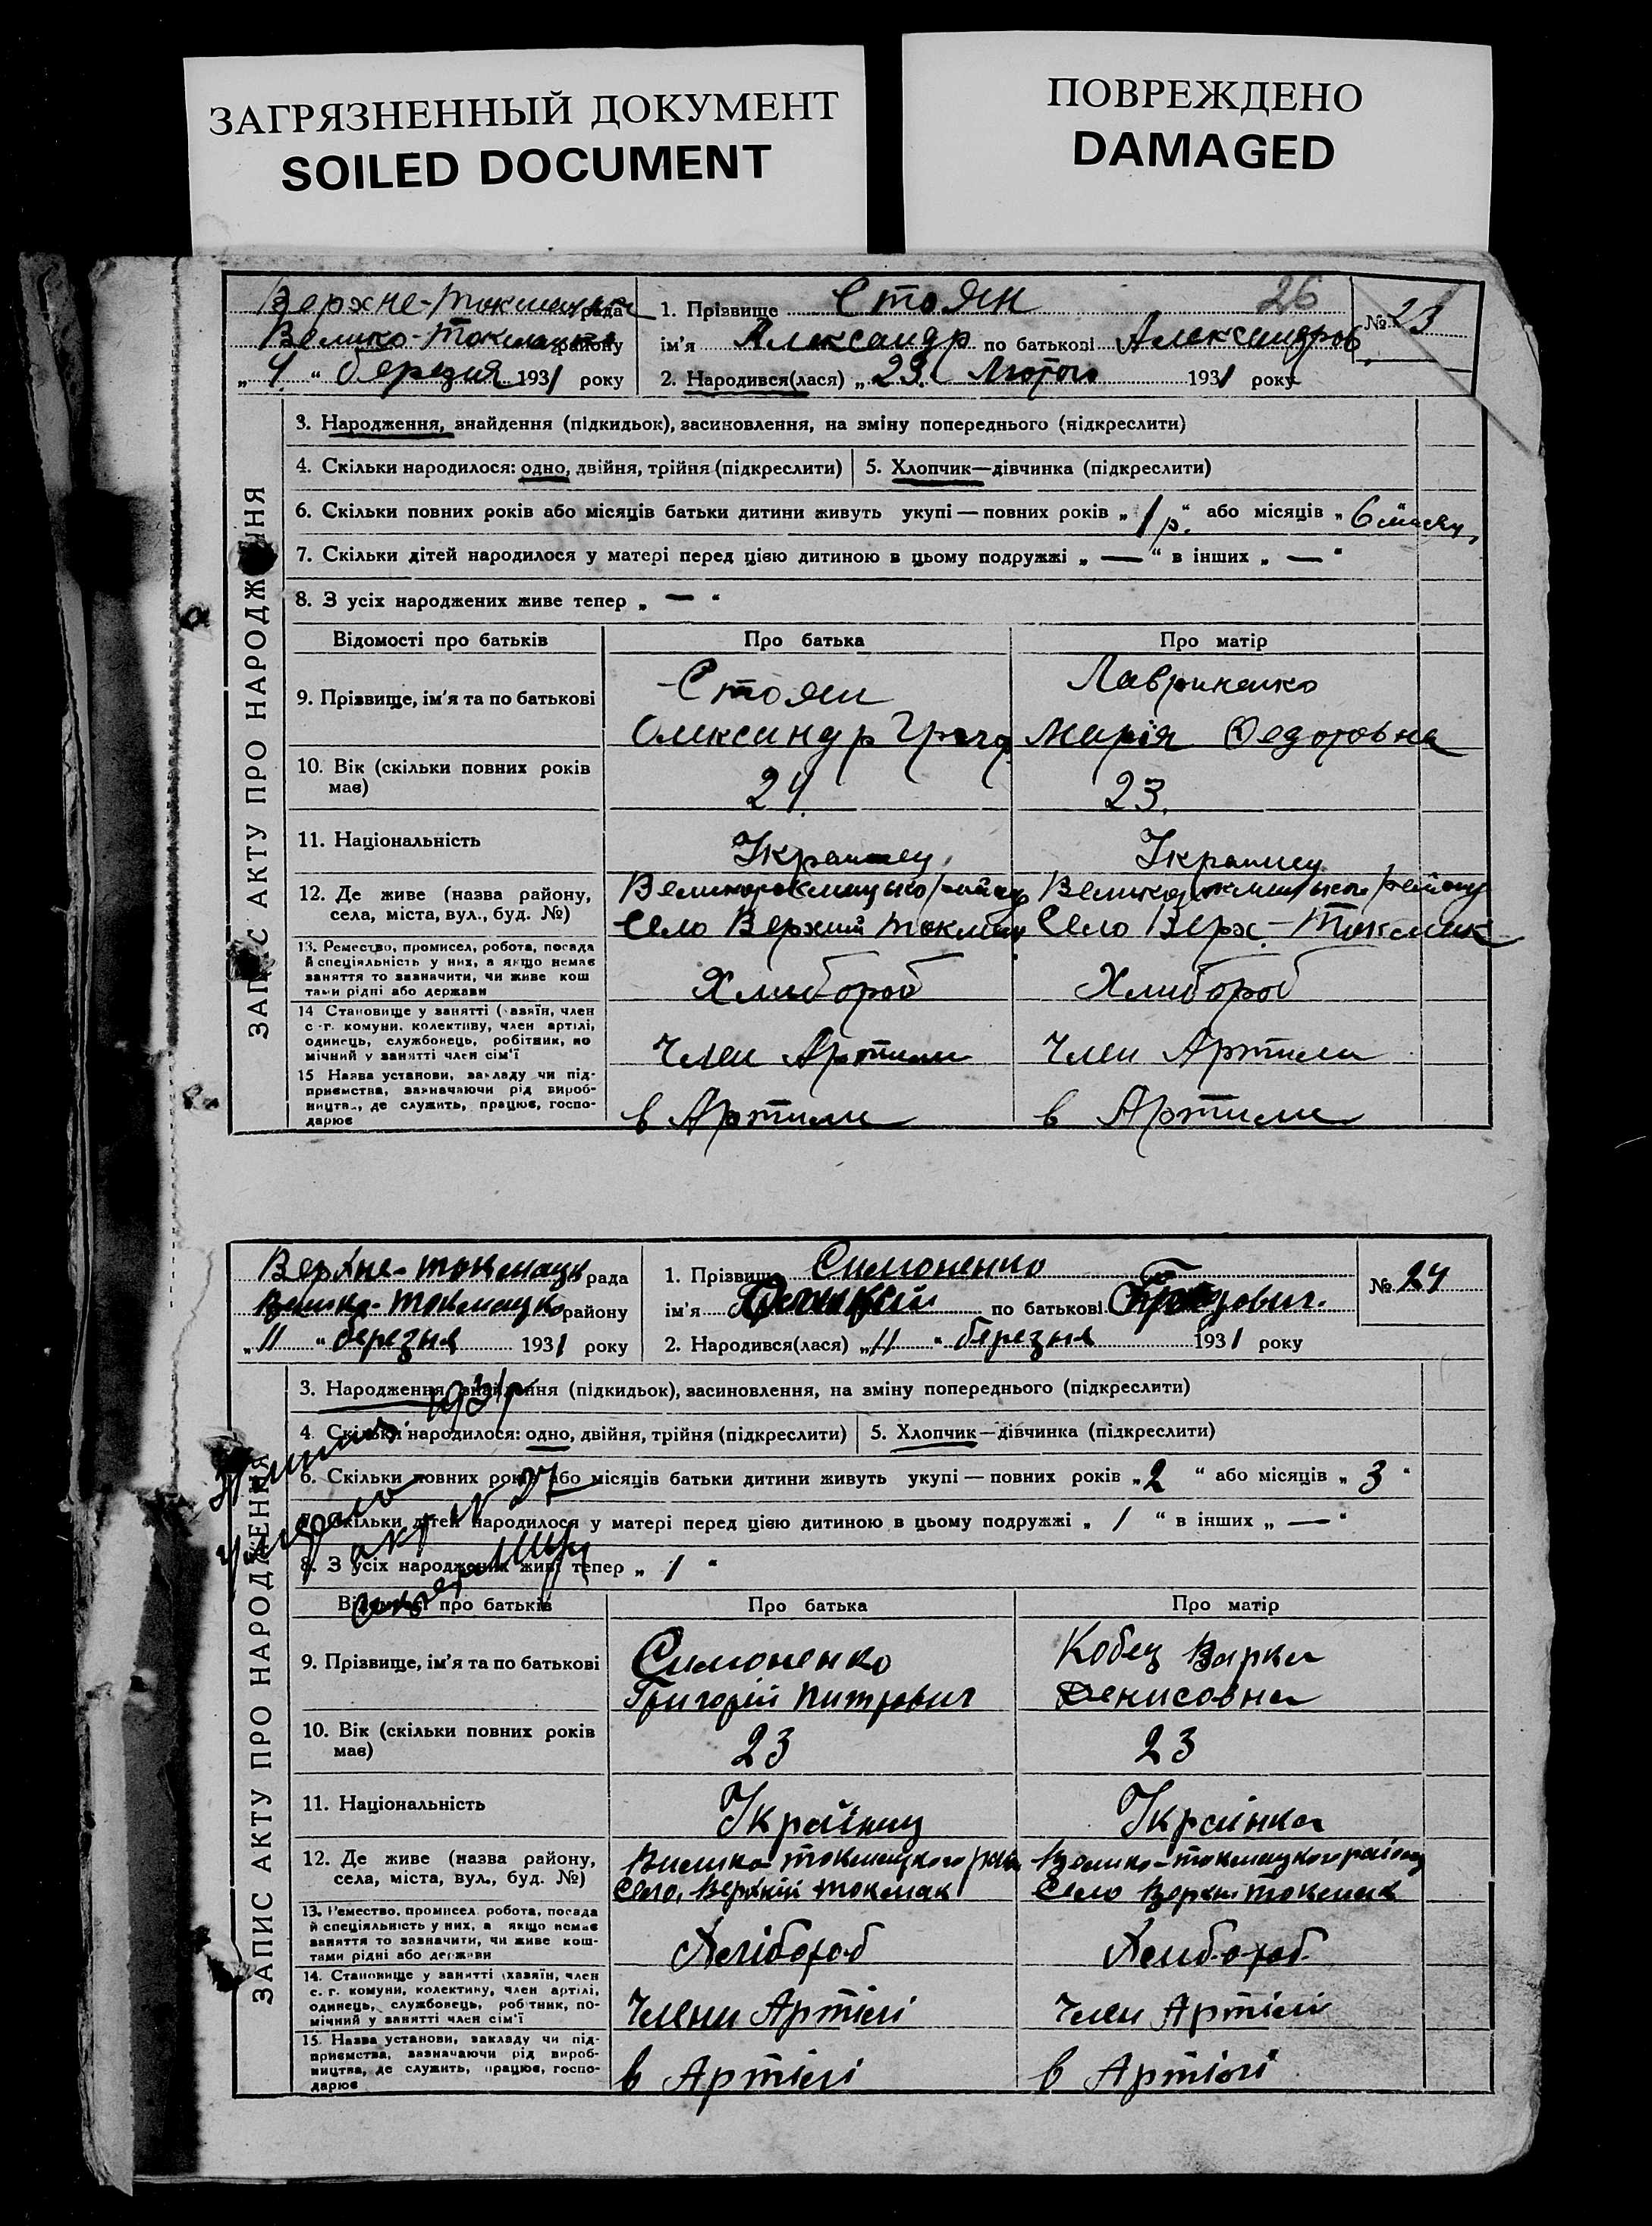 ЗАГРЯЗНЕННЫЙ ДОКУМЕНТ
SOILED DOCUMENT
ПОВРЕЖДЕНО
DAMAGED
26
Верхне-Токмацька рада
Велико-Токмацько району
„ 4 “ березня 1931 року
1. Прізвище Стоян
ім'я Александр по батькові Александров
2. Народився(лася) „ 23 “ Лютого 1931 року
№ 23
ЗАПИС АКТУ ПРО НАРОДЖЕННЯ
3. Народження, знайдення (підкидьок), засиновлення, на зміну попереднього (підкреслити)
4. Скільки народилося: одно, двійня, трійня (підкреслити)
5. Хлопчик—дівчинка (підкреслити)
6. Скільки повних років або місяців батьки дитини живуть укупі — повних років „ 1 р. “ або місяців „ 6
7. Скільки дітей народилося у матері перед цією дитиною в цьому подружжі „ — “ в інших „ — “
8. З усіх народжених живе тепер „ — “
Відомості про батьків
Про батька
Про матір
9. Прізвище, ім'я та по батькові
Стоян
Олександр
Лавриненко
Марія Федотовна
10. Вік (скільки повних років має)
24
23
11. Національність
Украинец
Украинец
12. Де живе (назва району,
села, міста, вул., буд. №)
Великотокмацько району
Село Верхній Токмак
Великотокмацького району
Село Верх.-Токмак
13. Ремество, промисел, робота, посада
й спеціяльність у них, а якщо немає
заняття то зазначити, чи живе кош
тами рідні або держави
Хлибороб
Хлибороб
14 Становище у занятті (хазяїн, член
с.-г. комуни, колективу, член артілі,
одинець, службовець, робітник, по
мічний у занятті член сім'ї
Член Артили
Член Артили
15 Назва установи, закладу чи під-
приємства, зазначаючи рід вироб-
ництва, де служить, працює, госпо-
дарює
в Артили
в Артили
Верхне-Токмацьк рада
Велико-Токмацько району
„ 11 “ березня 1931 року
1. Прізвище Симоненко
ім'я по батькові
2. Народився(лася) „ 11 “ березня 1931 року
№ 24
ЗАПИС АКТУ ПРО НАРОДЖЕННЯ
3. Народження, знайдення (підкидьок), засиновлення, на зміну попереднього (підкреслити)
4. Скільки народилося: одно, двійня, трійня (підкреслити)
5. Хлопчик—дівчинка (підкреслити)
6. Скільки повних років або місяців батьки дитини живуть укупі — повних років „ 2 “ або місяців „ 3 “
7. Скільки дітей народилося у матері перед цією дитиною в цьому подружжі „ 1 “ в інших „ — “
8. З усіх народжених живі тепер „ 1 “
1931р
акт № 27
Відомості про батьків
Про батька
Про матір
9. Прізвище, ім'я та по батькові
Симоненко
Григорій Питрович
Кобец Варка
Денисовна
10. Вік (скільки повних років має)
23
23
11. Національність
Українец
Українка
12. Де живе (назва району,
села, міста, вул., буд. №)
Велико-Токмацкого район
Село, Верхній Токмак
Велико-токмацкого району
Село Верхн. Токмак
13. Ремество, промисел, робота, посада
й спеціяльність у них, а якщо немає
заняття то зазначити, чи живе кош-
тами рідні або держави
Хлібороб
Хлибороб
14. Становище у занятті (хазяїн, член
с. г. комуни, колективу, член артілі,
одинець, службовець, робітник, по-
мічний у занятті член сім'ї
Члени Артілі
Член Артілі
15. Назва установи, закладу чи під-
приємства, зазначаючи рід вироб-
ництва, де служить, працює, госпо-
дарює
в Артілі
в Артілі